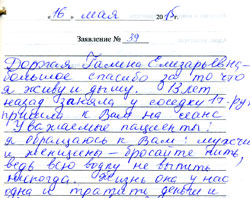 „16" мая 20 15 г.
Заявление № 39
Дорогая Галина Елизарьевна
большое спасибо за то что
я живу и дышу. 13 лет
назад заняла у соседку 17 руб
привели к Вам на сеанс
"Уважаемые пациенты!
я обращаюсь к Вам: мужчи
и женщины бросайте пить,
ведь всю водку не выпить
никогда. Жизнь она у нас
одна и тратить деньги и